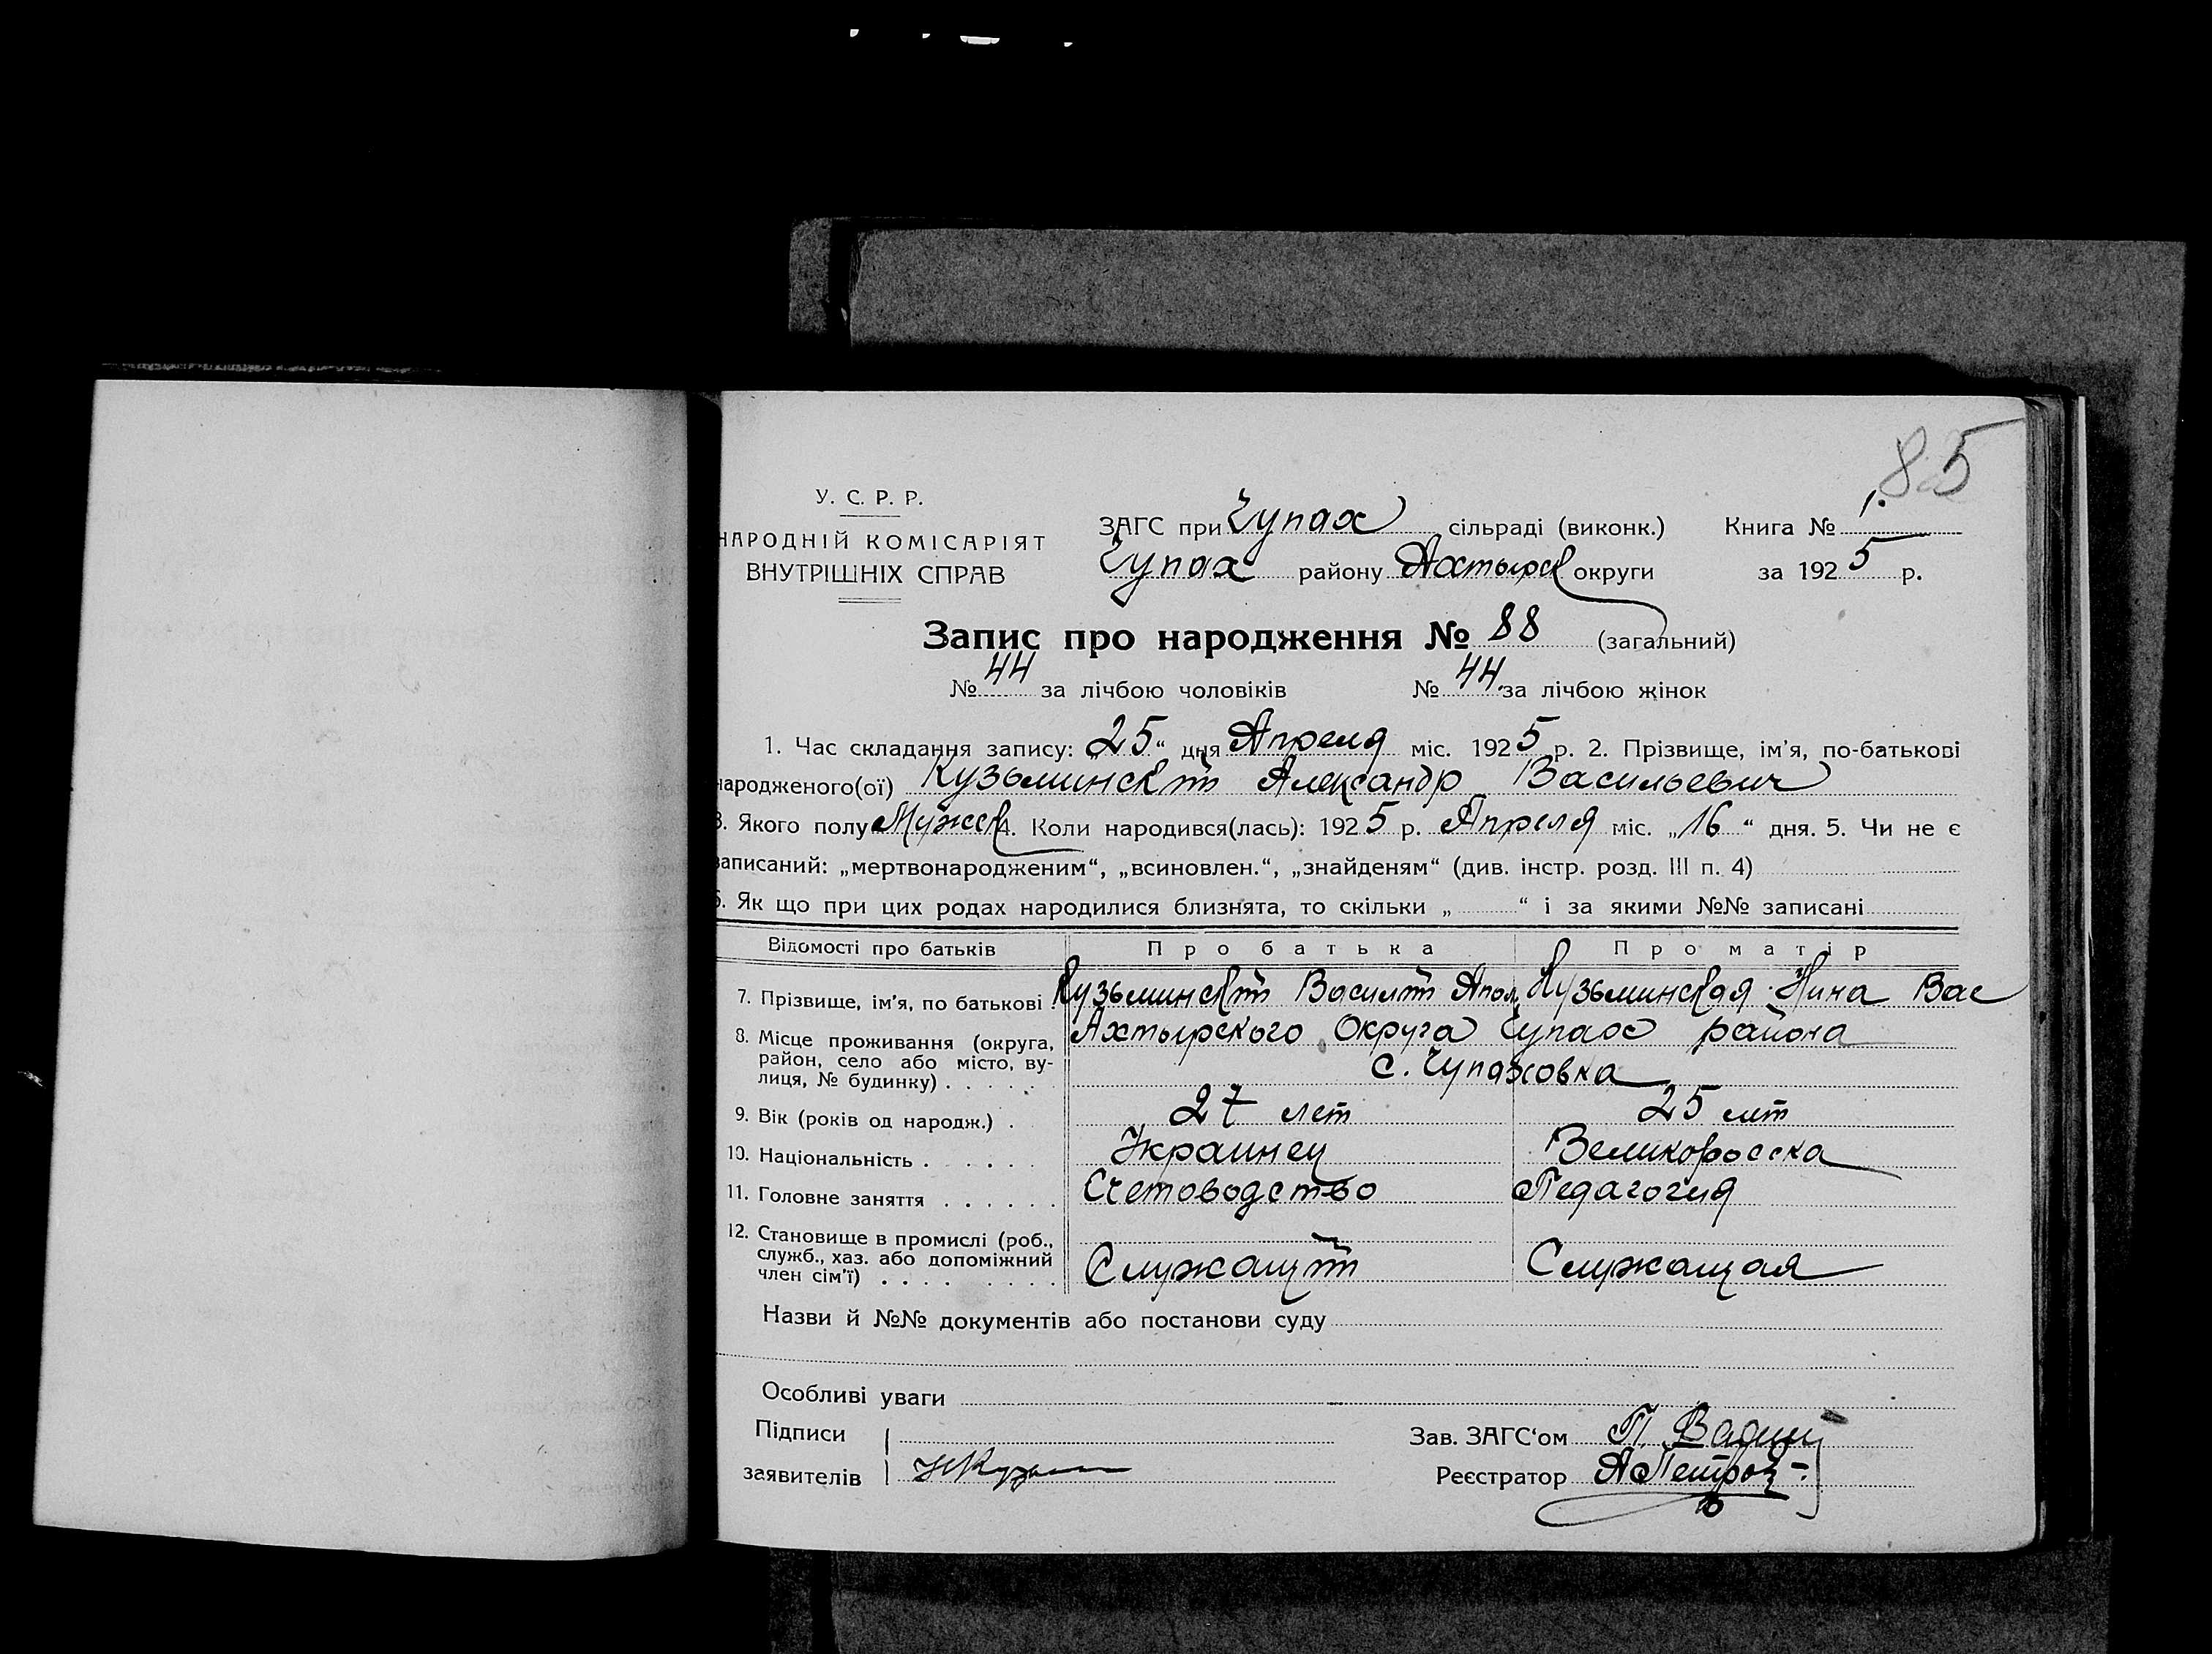 85
У. С. Р. Р.
НАРОДНІЙ КОМІСАРІЯТ
ВНУТРІШНІХ СПРАВ
ЗАГС при Чупах сільраді (виконк.) Книга № 1.
Чупах району Ахтырск округи за 1925 р.
Запис про народження № 88 (загальний)
№ 44 за лічбою чоловіків № 44 за лічбою жінок
1. Час складання запису: „25“ дня Апреля міс. 1925 р. 2. Прізвище, ім’я, по-батькові
народженого(ої) Кузьминский Александр Васильевич
3. Якого полу Мужск 4. Коли народився(лась): 1925 р. Апреля міс. „16“ дня. 5. Чи не є
записаний: „мертвонародженим“, „всиновлен.“, „знайденям“ (див. інстр. розд. III п. 4)
6. Як що при цих родах народилися близнята, то скільки „ “ і за якими №№ записані
Відомості про батьків Про батька Про матір
7. Прізвище, ім’я, по батькові . Кузьминский Василий Апол. Кузьминская Нина Вас
8. Місце проживання (округа, район, село або місто, вулиця, № будинку) . . . . . . Ахтырского Округа Чупах района
с. Чупаховка
9. Вік (років од народж.) . 27 лет 25 лет
10. Національність . . . . . . Украинец Великоросска
11. Головне заняття . . . . . . Счетоводство Педагогия
12. Становище в промислі (роб., служб., хаз. або допоміжний член сім’ї) . . . . . . . . . Служащий Служащая
Назви й №№ документів або постанови суду
Особливі уваги
Підписи
заявителів
Зав. ЗАГС‘ом П.
Реєстратор